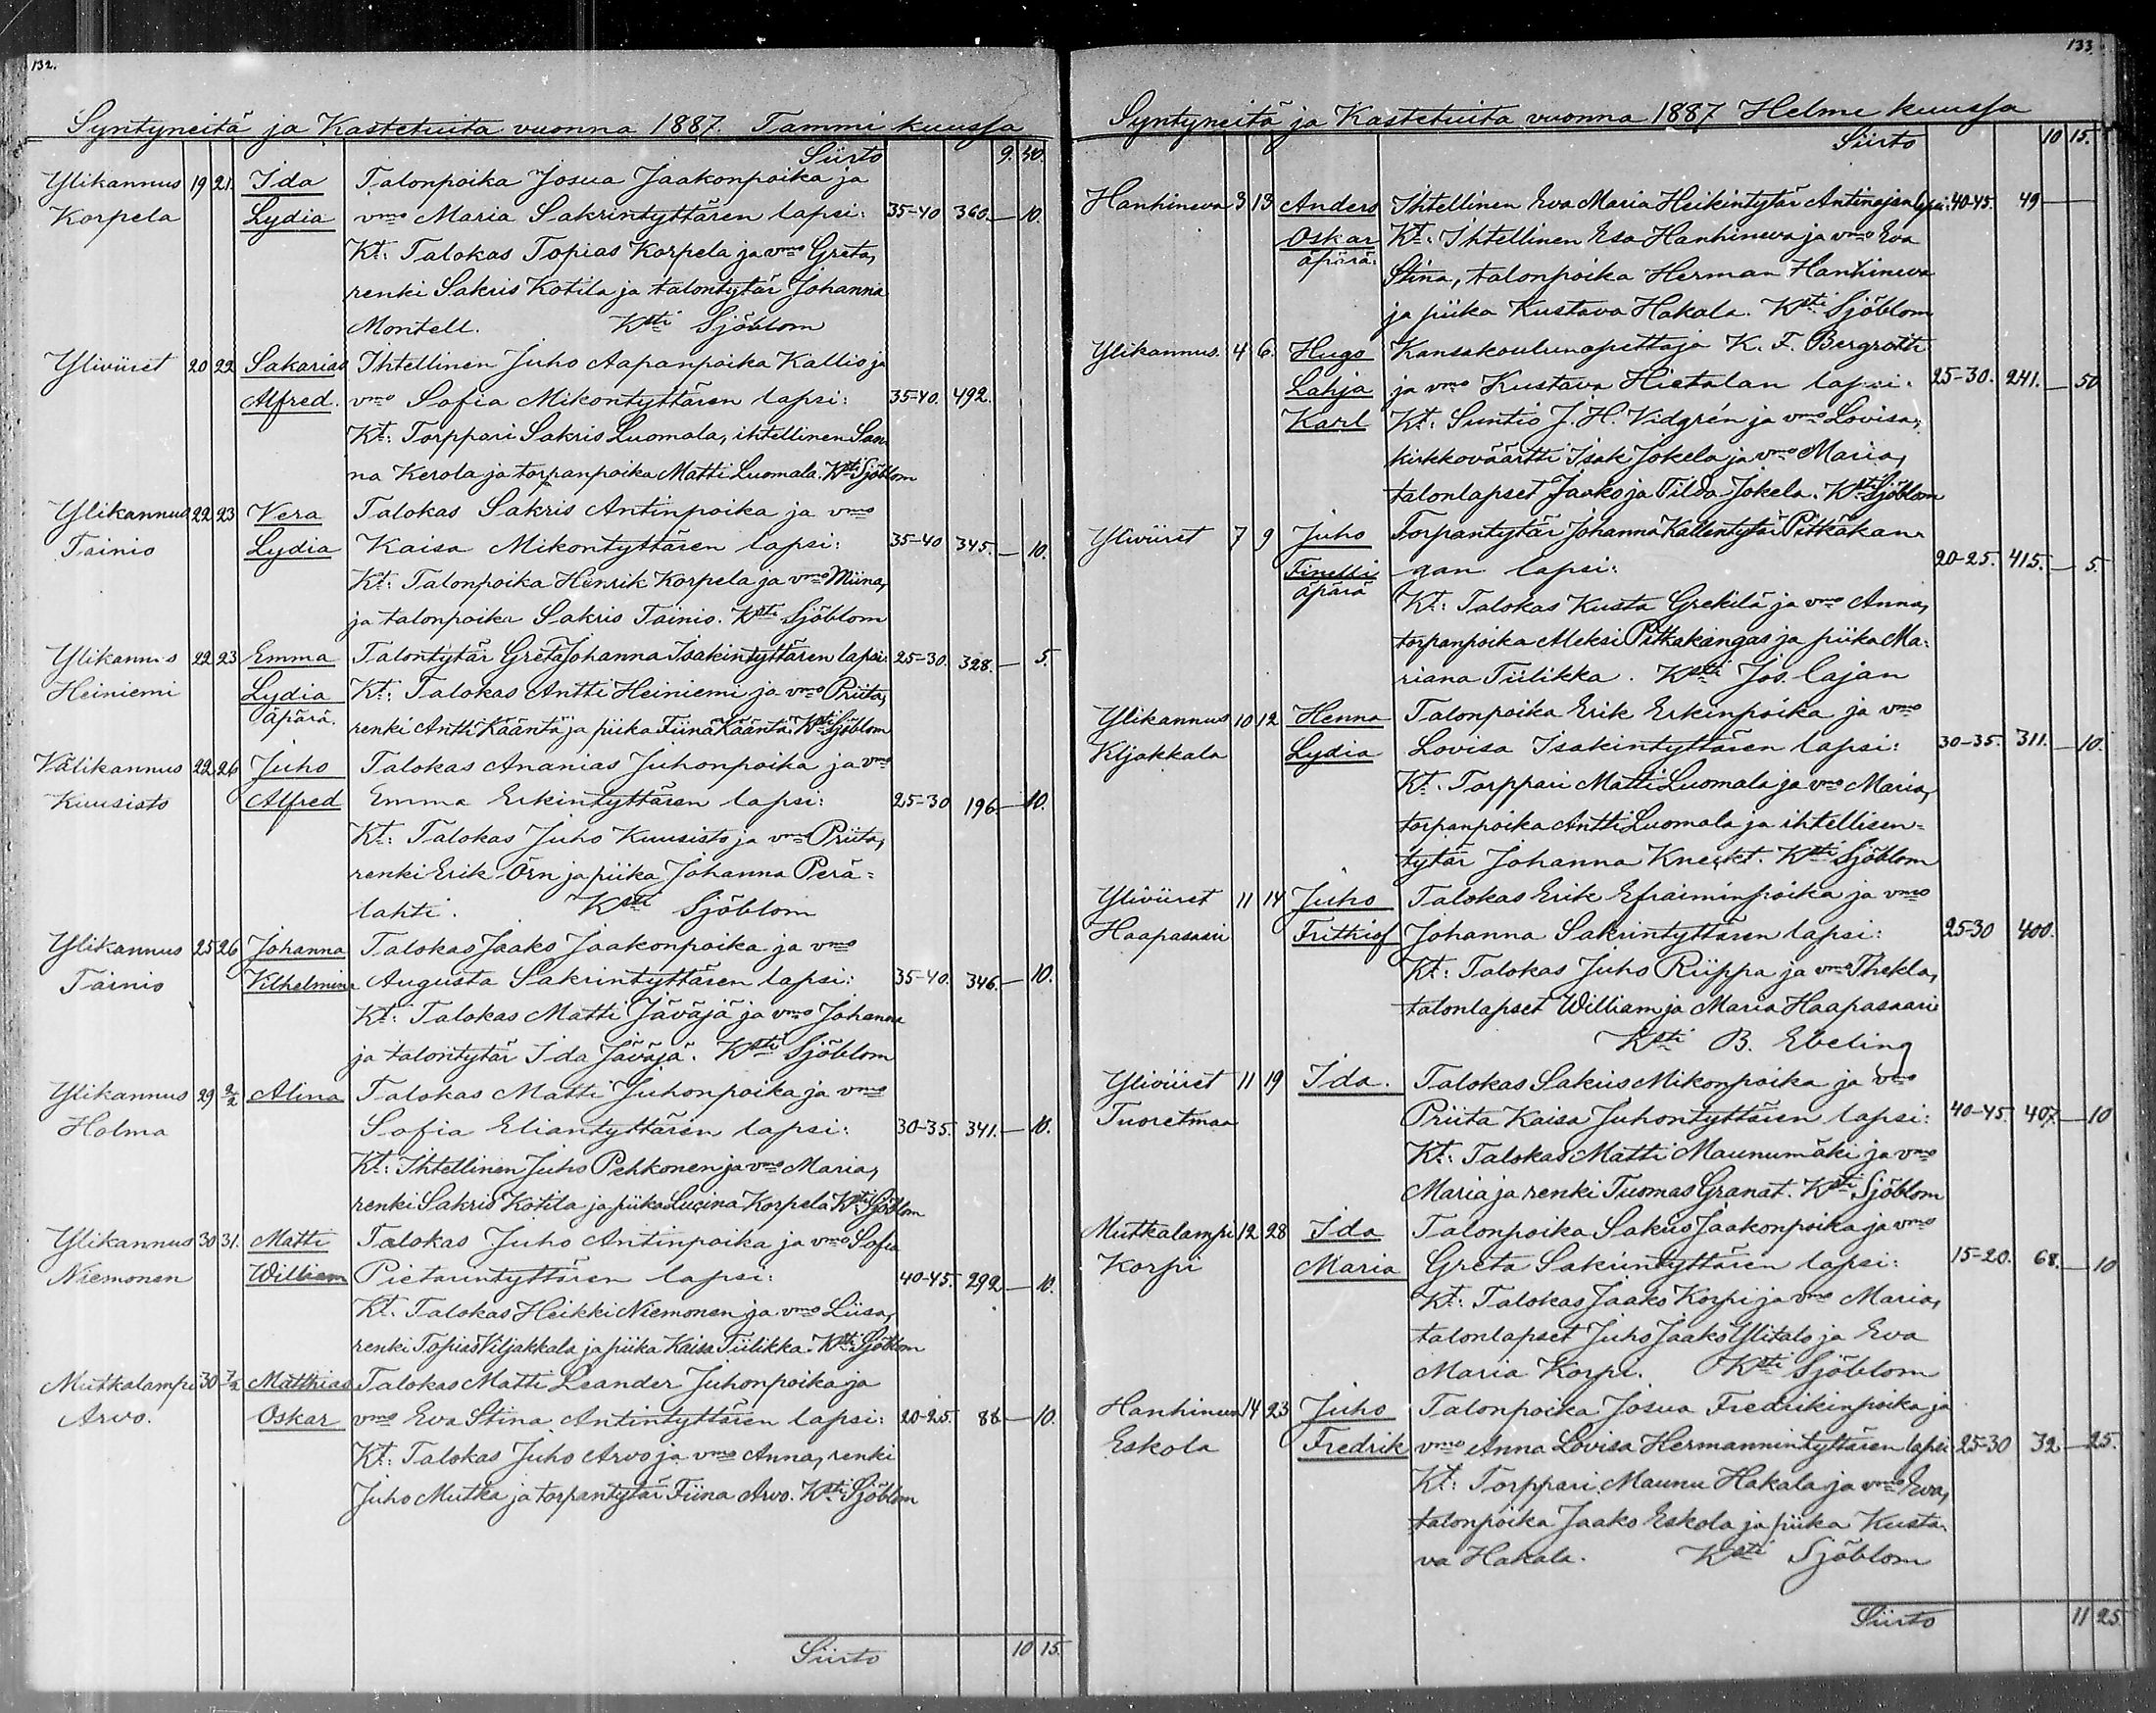 132.
Syntyneitä ja Kastetuita vuonna 1887. Tammi kuussa
Siirto 9. 40.
Ylikannus 19 21. Ida Talonpoika Josua Jaakonpoika ja
Korpela Lydia vmo Maria Sakrintyttären lapsi: 35-40 360. — 10.
Kt: Talokas Topias Korpela ja vmo Greta,
renki Sakris Kotila ja talontytär Johanna
Montell. Ksti Sjöblom
Yliviiret 20 22 Sakarias Ihtellinen Juho Aapanpoika Kallio ja
Alfred. vmo Sofia Mikontyttären lapsi: 35-40. 492.
Kt: Torppari Sakris Luomala, ihtellinen San
na Kerola ja torpanpoika Matti Luomala. Ksti Sjöblom
Ylikannus 22 23 Vera Talokas Sakris Antinpoika ja vmo
Tainio Lydia Kaisa Mikontyttären lapsi: 35-40 345. — 10.
Kt: Talonpoika Henrik Korpela ja vmo Miina,
ja talonpoika Sakris Tainio. Ksti Sjöblom
Ylikannus 22 23 Emma Talontytär Greta Johanna Isakintyttären lapsi: 25-30. 328. — 5.
Heiniemi Lydia Kt: Talokas Antti Heiniemi ja vmo Priita,
äpärä. renki Antti Kääntä ja piika Fiina Kääntä. Ksti Sjöblom
Välikannus 22 26 Juho Talokas Ananias Juhonpoika ja vmo
Kuusisto Alfred Emma Erkintyttären lapsi: 25-30 196. — 10.
Kt: Talokas Juho Kuusisto ja vmo Priita,
renki Erik Örn ja piika Johanna Perä=
lahti. Ksti Sjöblom
Ylikannus 25 26 Johanna Talokas Jaako Jaakonpoika ja vmo
Tainio Vilhelmina Augusta Sakrintyttären lapsi: 35-40. 346. — 10.
Kt: Talokas Matti Jäväjä ja vmo Johanna
ja talontytär Ida Jäväjä. Ksti Sjöblom
Ylikannus 29 2/2 Alina Talokas Matti Juhonpoika ja vmo
Holma Sofia Eliantyttären lapsi: 30-35. 341. — 10.
Kt: Ihtellinen Juho Pehkonen ja vmo Maria,
renki Sakris Kotila ja piika Lucina Korpela Ksti Sjöblom
Ylikannus 30 31. Matti Talokas Juho Antinpoika ja vmo Sofia
Niemonen William Pietarintyttären lapsi: 40-45. 292 — 10.
Kt: Talokas Heikki Niemonen ja vmo Liisa,
renki Topias Viljakkala ja piika Kaisa Tiilikka. Ksti Sjöblom
Mutkalampi 30 Matthias Talokas Matti Leander Juhonpoika ja
Arvo. Oskar vmo Eva Stina Antintyttären lapsi: 20-25. 88 — 10.
Kt: Talokas Juho Arvo ja vmo Anna, renki
Juho Mutka ja torpantytär Fiina Arvo. Ksti Sjöblom
Siirto 10 15.
133.
Syntyneitä ja Kastetuita vuonna 1887 Helmi kuussa
Siirto 10 15.
Hanhineva 3 13 Anders Ihtellinen Eva Maria Heikintytär Antinojan lapsi: 40-45. 49 —
Oskar Kt: Ihtellinen Esa Hanhineva ja vmo Eva
äpärä. Stina, talonpoika Herman Hanhineva
ja piika Kustava Hakala. Ksti Sjöblom
Ylikannus. 4 6. Hugo Kansakoulunopettaja K. F. Bergroth
Lahja ja vmo Kustava Hietalan lapsi. 25-30. 241. — 50
Karl Kt: Suntio J. H. Vidgrén ja vmo Lovisa,
kirkkoväärtti Isak Jokela ja vmo Maria,
talonlapset Jaako ja Tilda Jokela. Ksti Sjöblom
Yliviiret 7 9 Juho Torpantytär Johanna Kallentytär Pitkäkan-
gan lapsi: 20-25. 415. — 5.
äpärä Kt: Talokas Kusta Grekilä ja vmo Anna,
torpanpoika Aleksi Pitkäkangas ja piika Ma-
riana Tiilikka. Ksti Jos. Cajan
Ylikannus 10 12 Henna Talonpoika Erik Erkinpoika ja vmo
Lydia Lovisa Isakintyttären lapsi: 30-35. 311. — 10.
Kt. Torppari Matti Luomala ja vmo Maria,
torpanpoika Antti Luomala ja ihtellisen-
tytär Johanna Knekt. Ksti Sjöblom
Yliviiret 11 14 Juho Talokas Erik Efraiminpoika ja vmo
Haapasaari Frithiof Johanna Sakrintyttären lapsi: 25-30 400.
Kt: Talokas Juho Riippa ja vmo Thekla,
talonlapset William ja Maria Haapasaari
Ksti B. Ebeling
Yliviiret 11 19 Ida. Talokas Sakris Mikonpoika ja vmo
Tuoretmaa Priita Kaisa Juhontyttären lapsi: 40-45. 407. — 10
Kt: Talokas Matti Maunumäki ja vmo
Maria ja renki Tuomas Granat. Ksti Sjöblom
Mutkalampi 12 28 Ida Talonpoika Sakris Jaakonpoika ja vmo
Korpi Maria Greta Sakrintyttären lapsi: 15-20. 68. — 10
Kt: Talokas Jaako Korpi ja vmo Maria,
talonlapset Juho Jaako Ylitalo ja Eva
Maria Korpi. Ksti Sjöblom
Hanhineva 14 23 Juho Talonpoika Josua Fredrikinpoika ja
Eskola Fredrik vmo Anna Lovisa Hermannintyttären lapsi 25-30 32 — 25.
Kt: Torppari Maunu Hakala ja vmo Eva,
talonpoika Jaako Eskola ja piika Kusta-
va Hakala. Ksti Sjöblom
Siirto 11 25